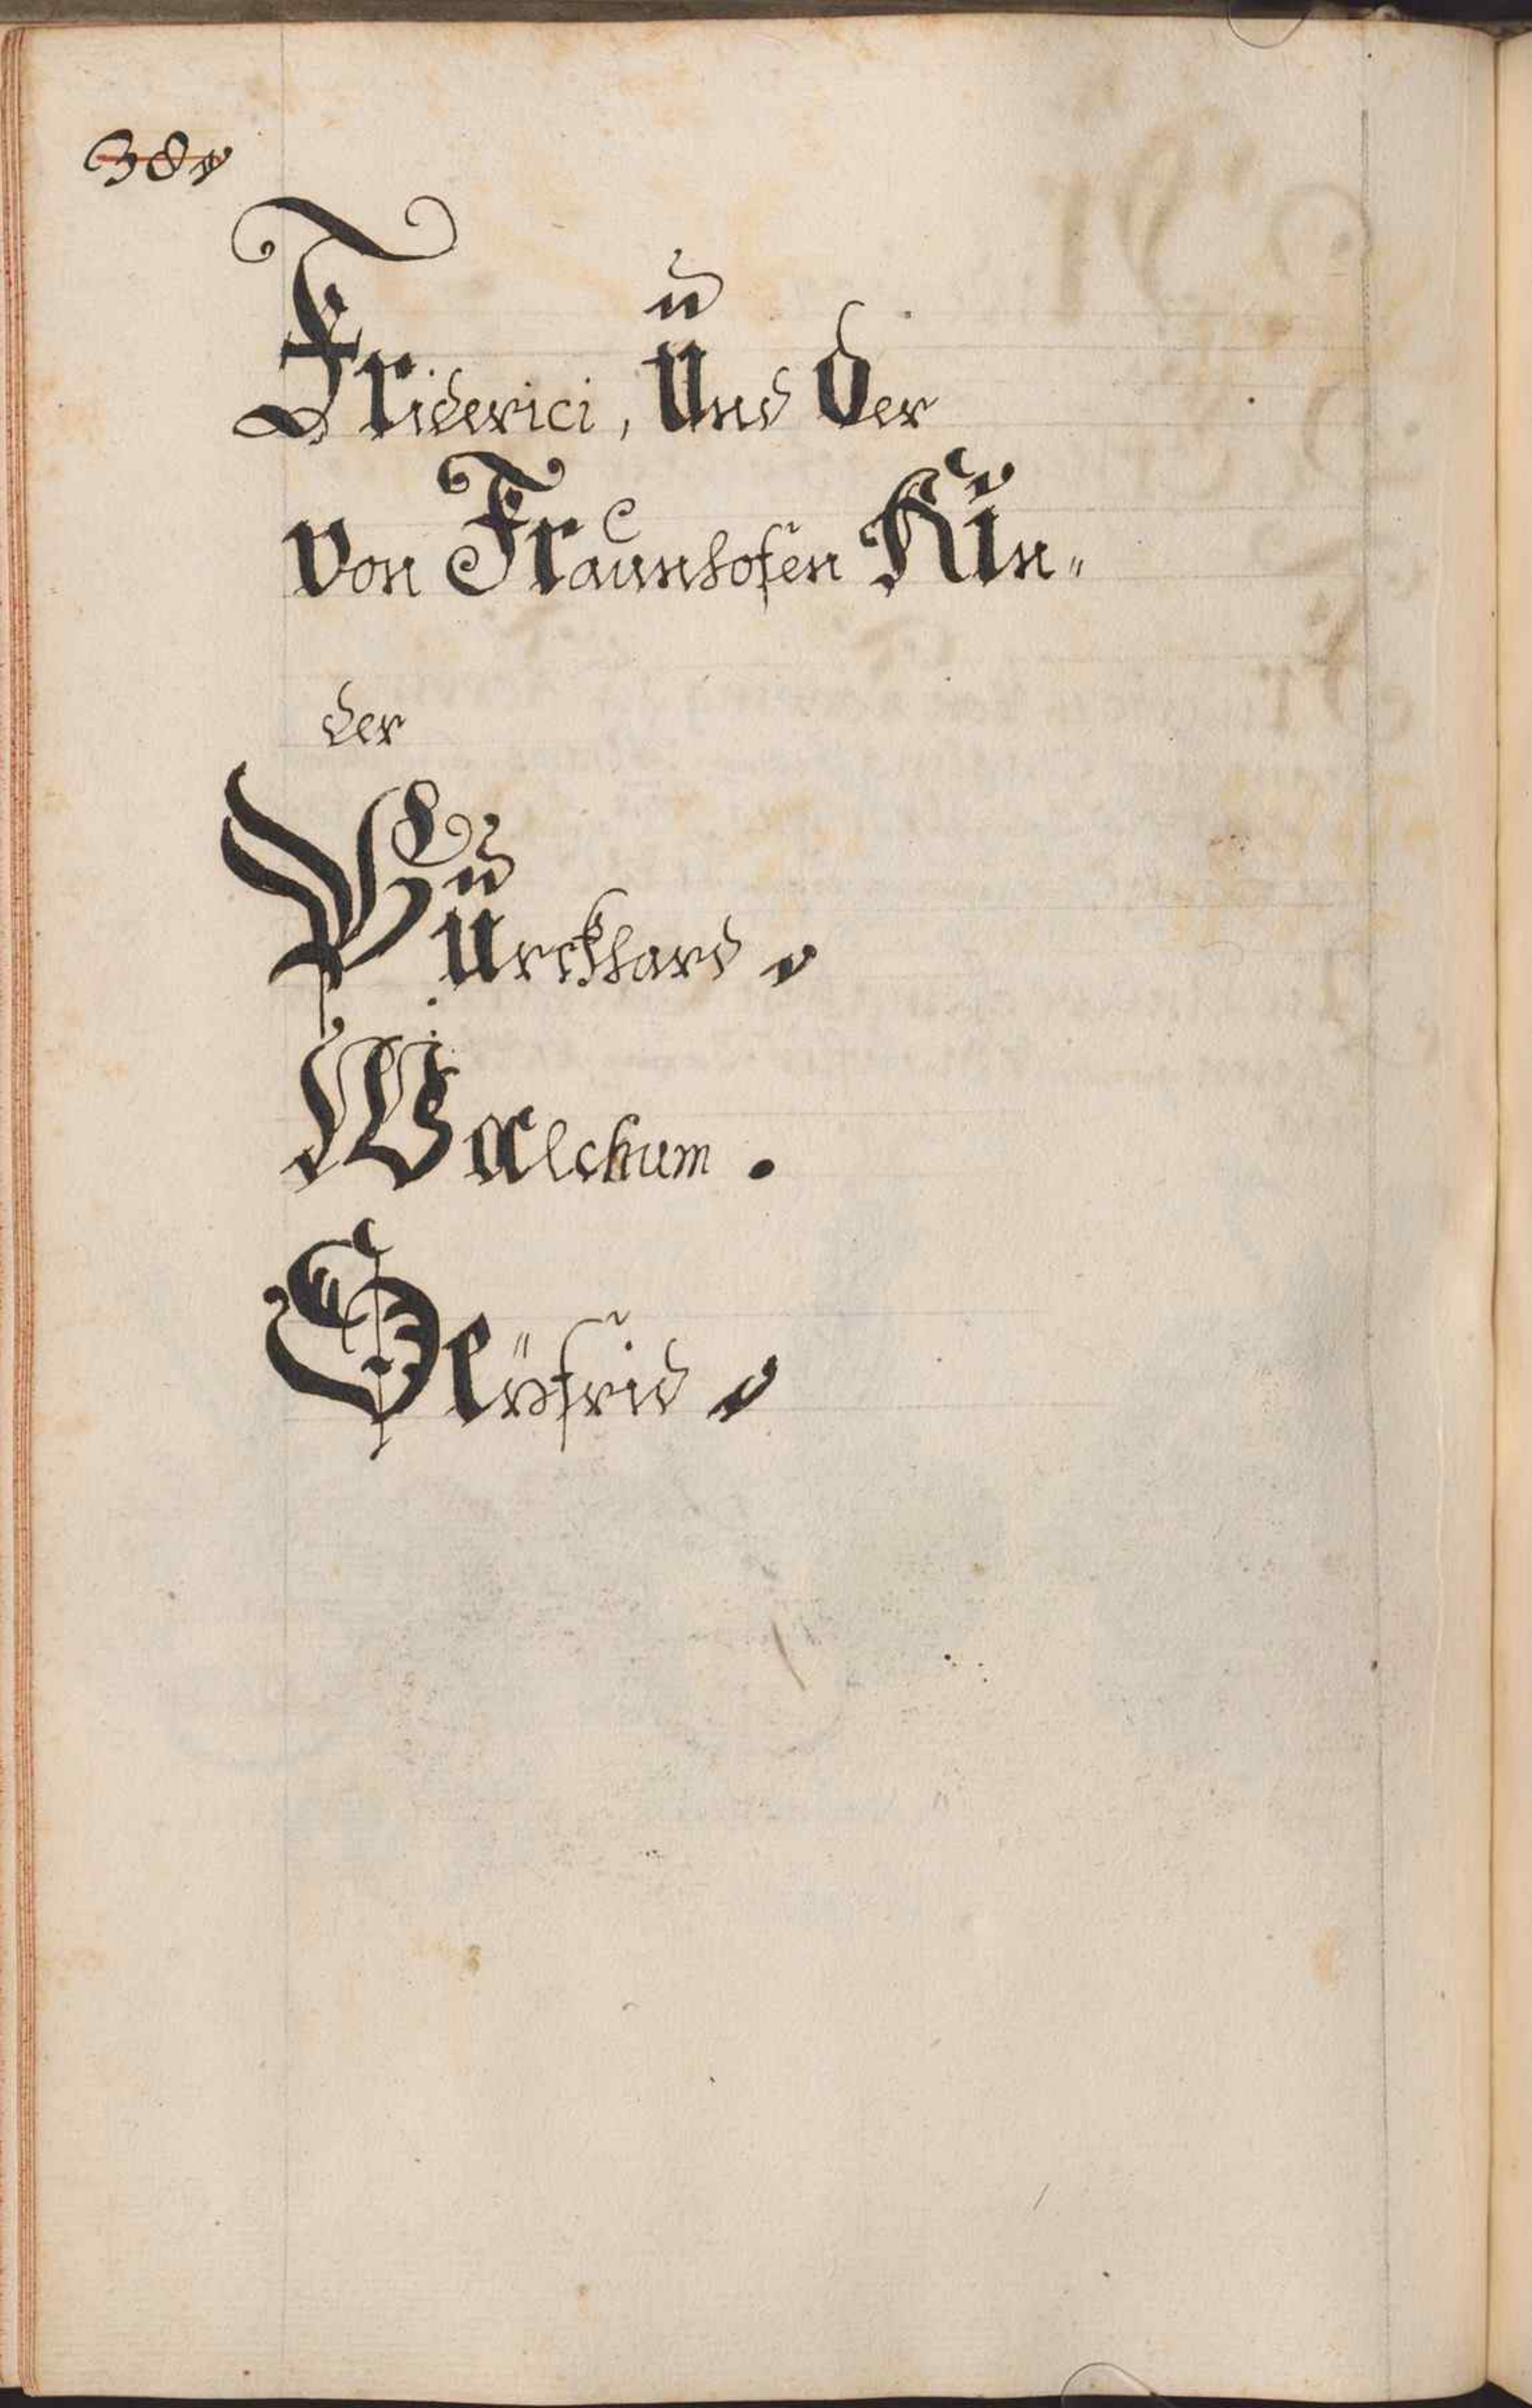 38v
Friderici, Und der
von Fraunhofen Kin„
der
Burckhard
Walchum.
Seÿfrid